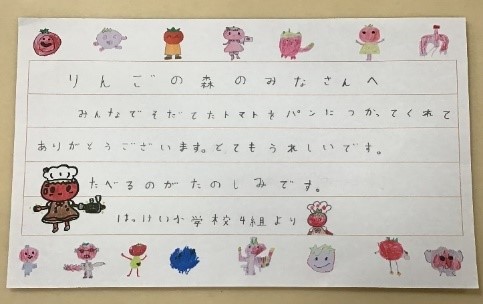 りんごの森のみなさんへ
みんなでそだてたトマトをパンにつかってくれて
ありがとうございます。とてもうれしいです。
たべるのがたのしみです。
はっけい小学校4組より